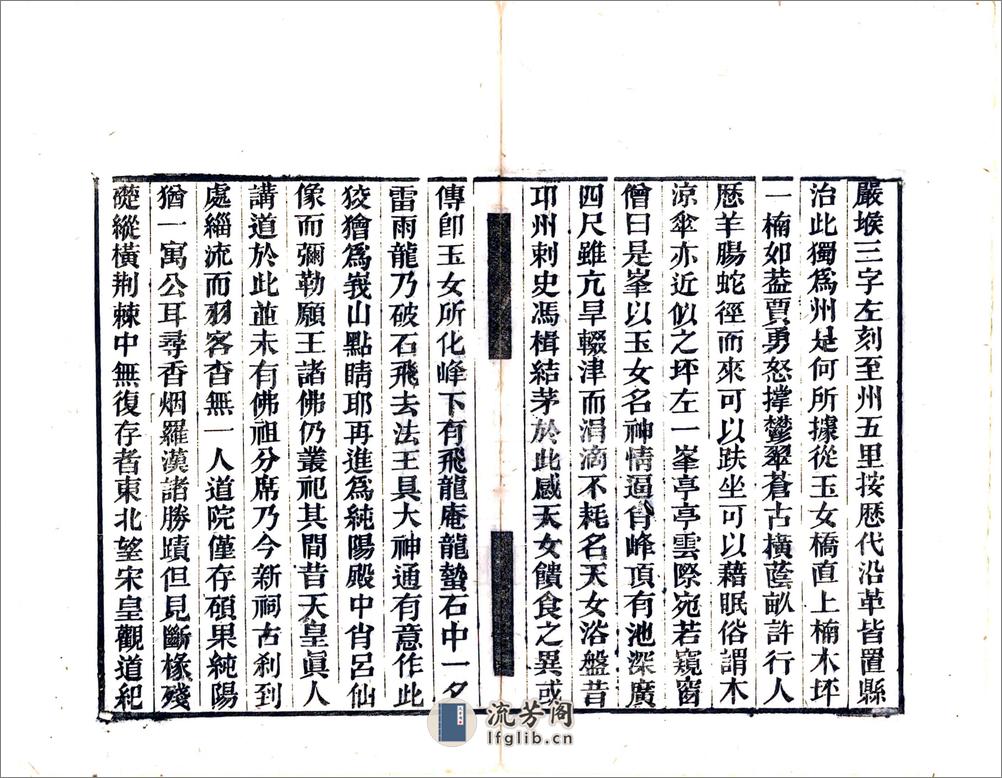 嚴堠三字左刻至州五里按歷代沿革皆置縣
治此獨爲州是何所據從玉女橋直上楠木坪
一楠如葢賈勇怒撐鬱翠蒼古橫蔭畝許行人
歷羊腸蛇徑而來可以趺坐可以藉眠俗謂木
涼傘亦近似之坪左一峯亭亭雲際宛若窺窗
僧曰是峯以玉女名神情逼肖峰頂有池深廣
四尺雖亢旱輟津而涓滴不耗名天女浴盤昔
邛州刺史馮楫結茅於此感天女饋食之異或
傳卽玉女所化峰下有飛龍庵龍蟄石中一夕
雷雨龍乃破石飛去法王具大神通有意作此
狡獪爲峩山點睛耶再進爲純陽殿中肖呂仙
像而彌勒願王諸佛仍叢祀其間昔天皇眞人
講道於此並未有佛祖分席乃今新祠古刹到
處緇流而羽客杳無一人道院僅存碩果純陽
猶一寓公耳尋香烟羅漢諸勝蹟但見斷椽殘
礎縱橫荆棘中無復存者東北望宋皇觀道紀
流芳阁
lfglib.cn